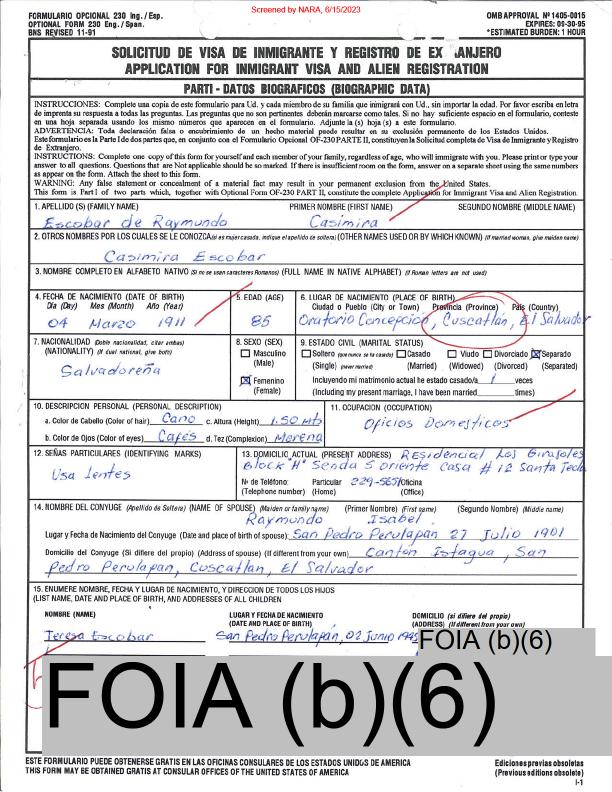 Screened by NARA, 6/15/2023
FORMULARIO OPCIONAL 230 Ing./Esp.
OPTIONAL FORM 230 Eng./Span.
BNS REVISED 11-91
OMB APPROVAL Nº 1405-0015
EXPIRES: 09-30-95
*ESTIMATED BURDEN: 1 HOUR
SOLICITUD DE VISA DE INMIGRANTE Y REGISTRO DE EX ANJERO
APPLICATION FOR INMIGRANT VISA AND ALIEN REGISTRATION
PARTI - DATOS BIOGRAFICOS (BIOGRAPHIC DATA)
INSTRUCCIONES: Complete una copia de este formulario para Ud. y cada miembro de su familia que inmigrará con Ud., sin importar la edad. Por favor escriba en letra
de imprenta su respuesta a todas las preguntas. Las preguntas que no son pertinentes deberán marcarse como tales. Si no hay suficiente espacio en el formulario, conteste
en una hoja separada usando los mismo números que aparecen en el formulario. Adjunte la(s) hoja(s) a este formulario.
ADVERTENCIA: Toda declaración falsa o encubrimiento de un hecho material puede resultar en su exclusión permanente de los Estados Unidos.
Este formulario es la Parte I de dos partes que, en conjunto con el Formulario Opcional OF-230 PARTE II, constituyen la Solicitud completa de Visa de Inmigrante y Registro
de Extranjero.
INSTRUCTIONS: Complete one copy of this form for yourself and each member of your family, regardless of age, who will immigrate with you. Please print or type your
answer to all questions. Questions that are Not applicable should be so marked. If there is insufficient room on the form, answer on a separate sheet using the same numbers
as appear on the form. Attach the sheet to this form.
WARNING: Any false statement or concealment of a material fact may result in your permanent exclusion from the United States.
This form is Part I of two parts which, together with Optional Form OF-230 PART II, constitute the complete Application for Inmigrant Visa and Alien Registration.
1. APELLIDO (S) (FAMILY NAME) PRIMER NOMBRE (FIRST NAME) SEGUNDO NOMBRE (MIDDLE NAME)
Escobar de Raymundo Casimira
2. OTROS NOMBRES POR LOS CUALES SE LE CONOZCA (si es mujer casada, indique el apellido de soltera) (OTHER NAMES USED OR BY WHICH KNOWN) (If married woman, give maiden name)
Casimira Escobar
3. NOMBRE COMPLETO EN ALFABETO NATIVO (Si no se usan caracteres Romanos) (FULL NAME IN NATIVE ALPHABET) (If Roman letters are not used)
4. FECHA DE NACIMIENTO (DATE OF BIRTH)
Día (Day) Mes (Month) Año (Year)
04 Marzo 1911
5. EDAD (AGE)
85
6. LUGAR DE NACIMIENTO (PLACE OF BIRTH)
Ciudad o Pueblo (City or Town) Provincia (Province) País (Country)
Oratorio Concepcion, Cuscatlan, El Salvador
7. NACIONALIDAD (Doble nacionalidad, citar ambas)
(NATIONALITY) (If dual national, give both)
Salvadoreña
8. SEXO (SEX)
Masculino
(Male)
Femenino
(Female)
9. ESTADO CIVIL (MARITAL STATUS)
Soltero (que nunca se ha casado) Casado Viudo Divorciado Separado
(Single) (never married) (Married) (Widowed) (Divorced) (Separated)
Incluyendo mi matrimonio actual he estado casado/a 1 veces
(Including my present marriage, I have been married times)
10. DESCRIPCION PERSONAL (PERSONAL DESCRIPTION)
a. Color de Cabello (Color of hair) Cano c. Altura (Height) 1.50 mts
b. Color de Ojos (Color of eyes) Cafés d. Tez (Complexion) Morena
11. OCUPACION (OCCUPATION)
Oficios Domesticos
12. SEÑAS PARTICULARES (IDENTIFYING MARKS)
Usa lentes
13. DOMICILIO ACTUAL (PRESENT ADDRESS) Residencial Los Girasoles
Block "H" Senda 5 Oriente Casa # 12 Santa Tecla
Nº de Teléfono: Particular 229-5651 Oficina
(Telephone number) (Home) (Office)
14. NOMBRE DEL CONYUGE (Apellido de Soltera) (NAME OF SPOUSE) (Maiden or family name) (Primer Nombre) (First name) (Segundo Nombre) (Middle name)
Raymundo Isabel
Lugar y Fecha de Nacimiento del Conyuge (Date and place of birth of spouse): San Pedro Perulapan 27 Julio 1901
Domicilio del Conyuge (Si difiere del propio) (Address of spouse) (If different from your own) Canton Istagua, San
Pedro Perulapan, Cuscatlan, El Salvador
15. ENUMERE NOMBRE, FECHA Y LUGAR DE NACIMIENTO, Y DIRECCION DE TODOS LOS HIJOS
(LIST NAME, DATE AND PLACE OF BIRTH, AND ADDRESSES OF ALL CHILDREN
NOMBRE (NAME) LUGAR Y FECHA DE NACIMIENTO DOMICILIO (si difiere del propio)
(DATE AND PLACE OF BIRTH) (ADDRESS) (If different from your own)
Teresa Escobar San Pedro Perulapan, 02 Junio FOIA (b)(6)
FOIA (b)(6)
ESTE FORMULARIO PUEDE OBTENERSE GRATIS EN LAS OFICINAS CONSULARES DE LOS ESTADOS UNIDOS DE AMERICA
THIS FORM MAY BE OBTAINED GRATIS AT CONSULAR OFFICES OF THE UNITED STATES OF AMERICA
Ediciones previas obsoletas
(Previous editions obsolete)
I-1